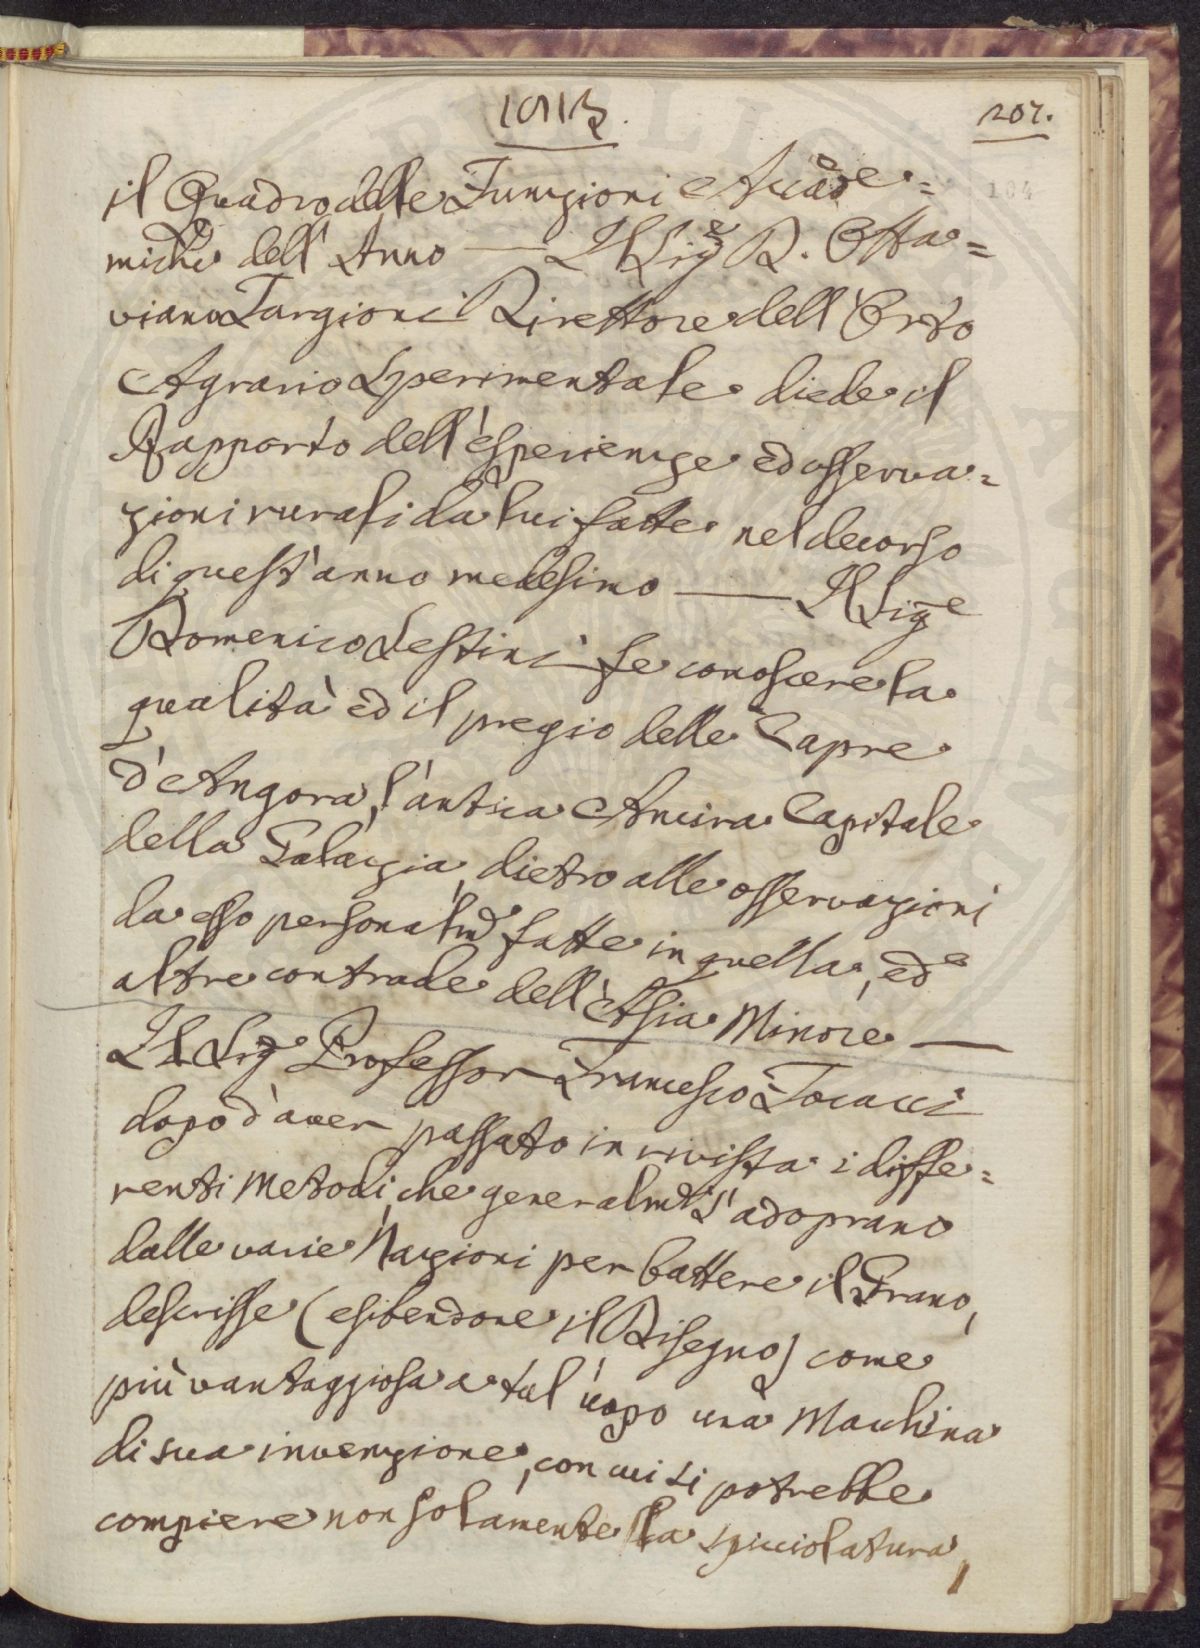 207.
il Quadro delle Funzioni Accade=
miche dell' Anno — Il Sig.e D. Otta=
viano Targioni Direttore dell' Orto
Agrario Sperimentale diede il
Rapporto dell' esperienze ed osserva=
zioni rurali da lui fatte nel decorso
di quest' anno medesimo — Il Sig.e
Domenico Sestini fe conoscere la
qualità ed il pregio delle Capre
d' Angora, l' antica Ancira Capitale
della Galazia, dietro alle osservazioni
da esso personalm.e fatte in quella, ed
altre contrade dell' Asia Minore —
Il Sig.e Professor Francesco Focacci
dopo d' aver passato in rivista i diffe=
renti Metodi, che generalm.e s' adoprano
dalle varie Nazioni per battere il Grano,
descrisse (esibendone il Disegno) come
più vantaggiosa a tal uopo una Macchina
di sua invenzione, con cui si potrebbe
compiere non solamente la spicciolatura,